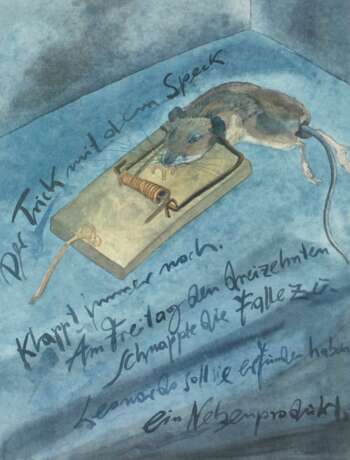 Der Trick mit dem Speck
Klappt immer noch.
Am Freitag den dreizehnten
schnappte die Falle zu.
Leonardo soll sie erfunden haben
ein Nebenprodukt.